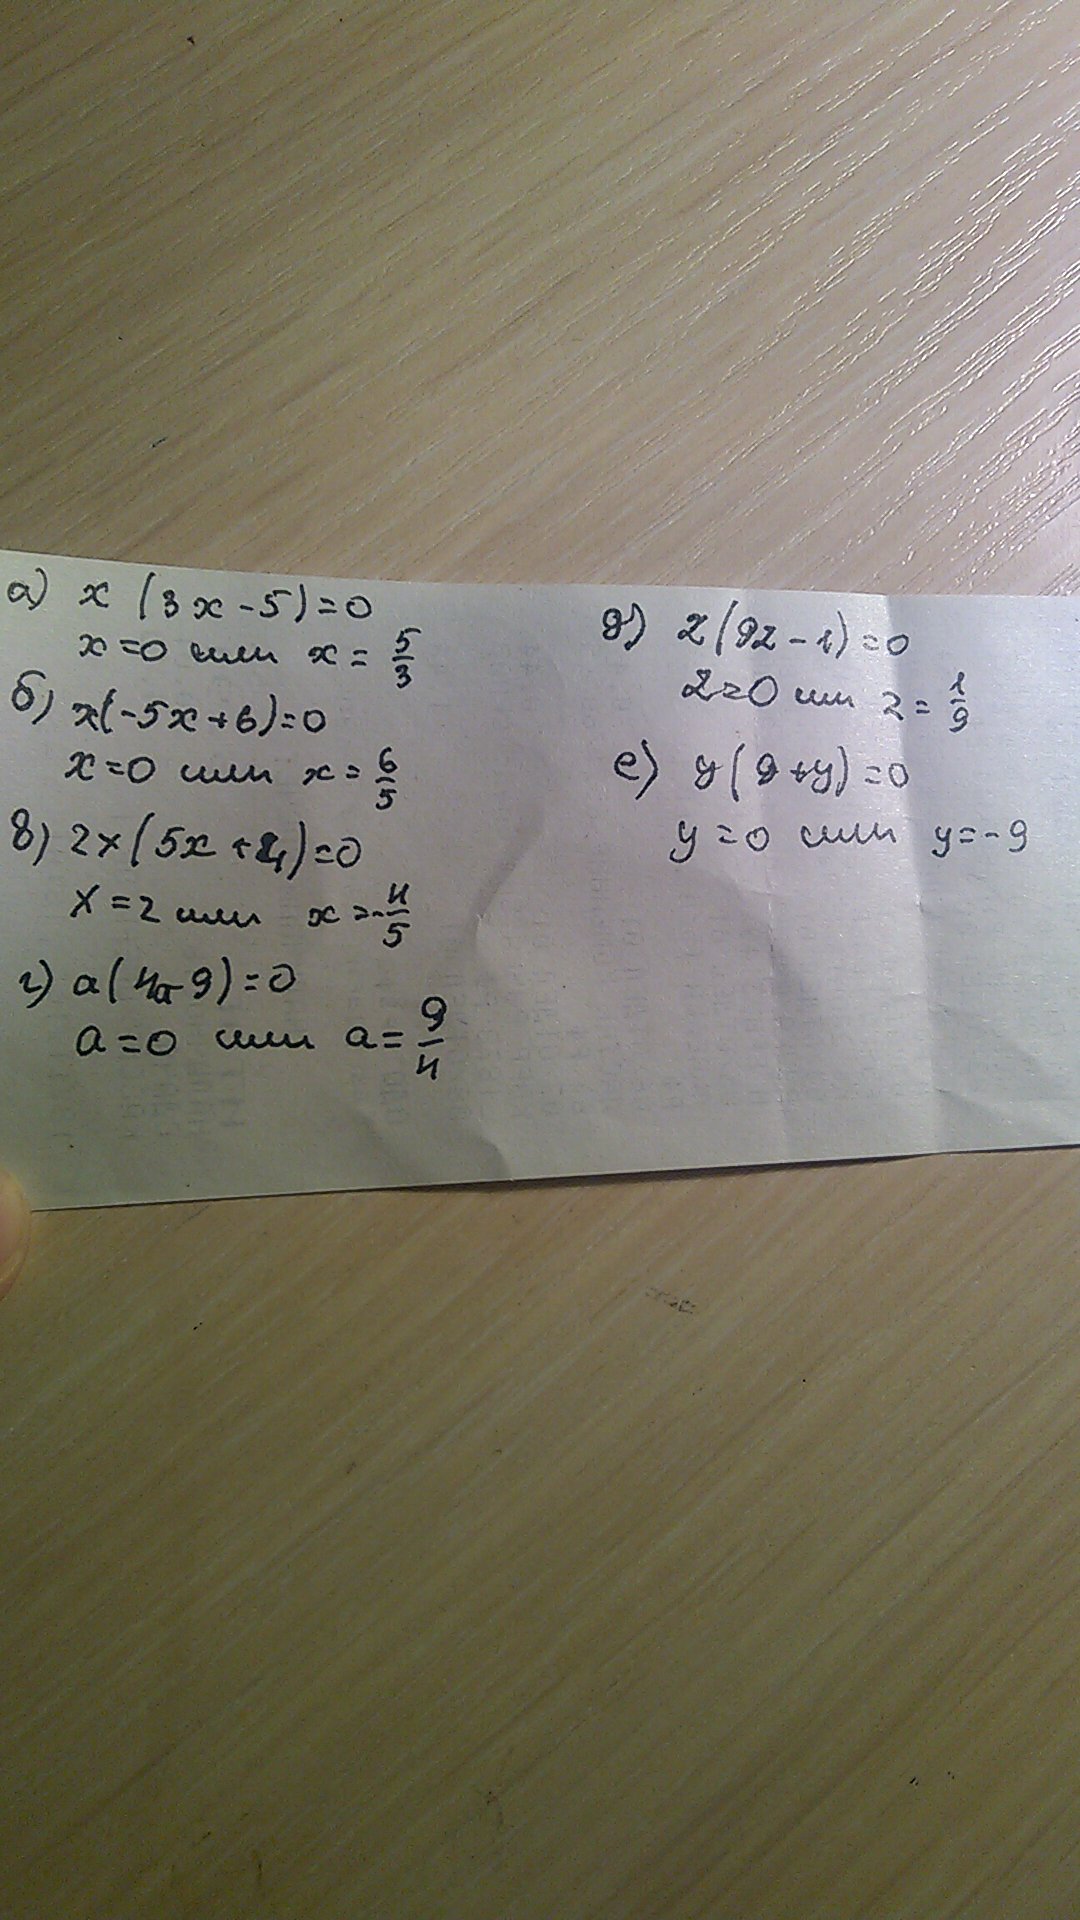 а) x (3x-5)=0
x=0 или x= 5/3
б) x(-5x+6)=0
x=0 или x= 6/5
в) 2x(5x+4)=0
x=2 или x=-4/5
г) a(4a-9)=0
a=0 или a= 9/4
д) z(9z-1)=0
z=0 или z= 1/9
е) y(9+y)=0
y=0 или y=-9